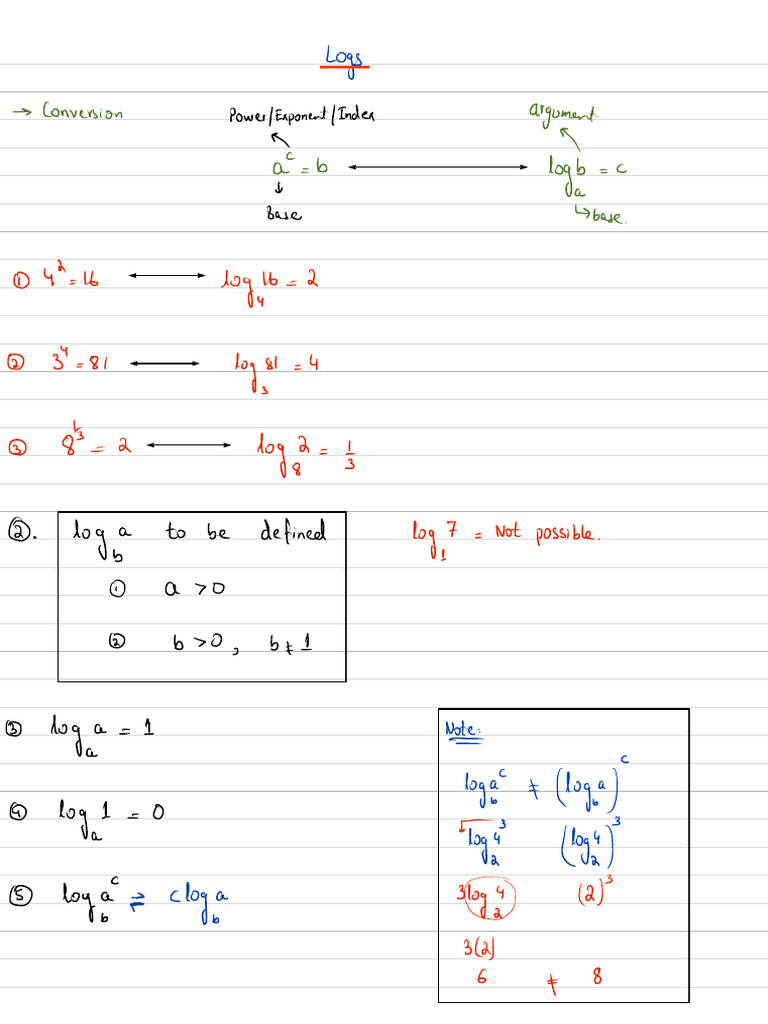 Logs
→ Conversion
Power/Exponent/Index
argument
a^c = b ⟷ log_a b = c
Base
↳base.
① 4^2 = 16 ⟷ log_4 16 = 2
② 3^4 = 81 ⟷ log_3 81 = 4
③ 8^(1/3) = 2 ⟷ log_8 2 = 1/3
②. log_b a to be defined
① a > 0
② b > 0, b ≠ 1
log_1 7 = Not possible.
③ log_a a = 1
④ log_a 1 = 0
⑤ log_b a^c ⇌ c log_b a
Note:
log_b a^c ≠ (log_b a)^c
log_2 4^3 (log_2 4)^3
3 log_2 4 (2)^3
3(2)
6 ≠ 8